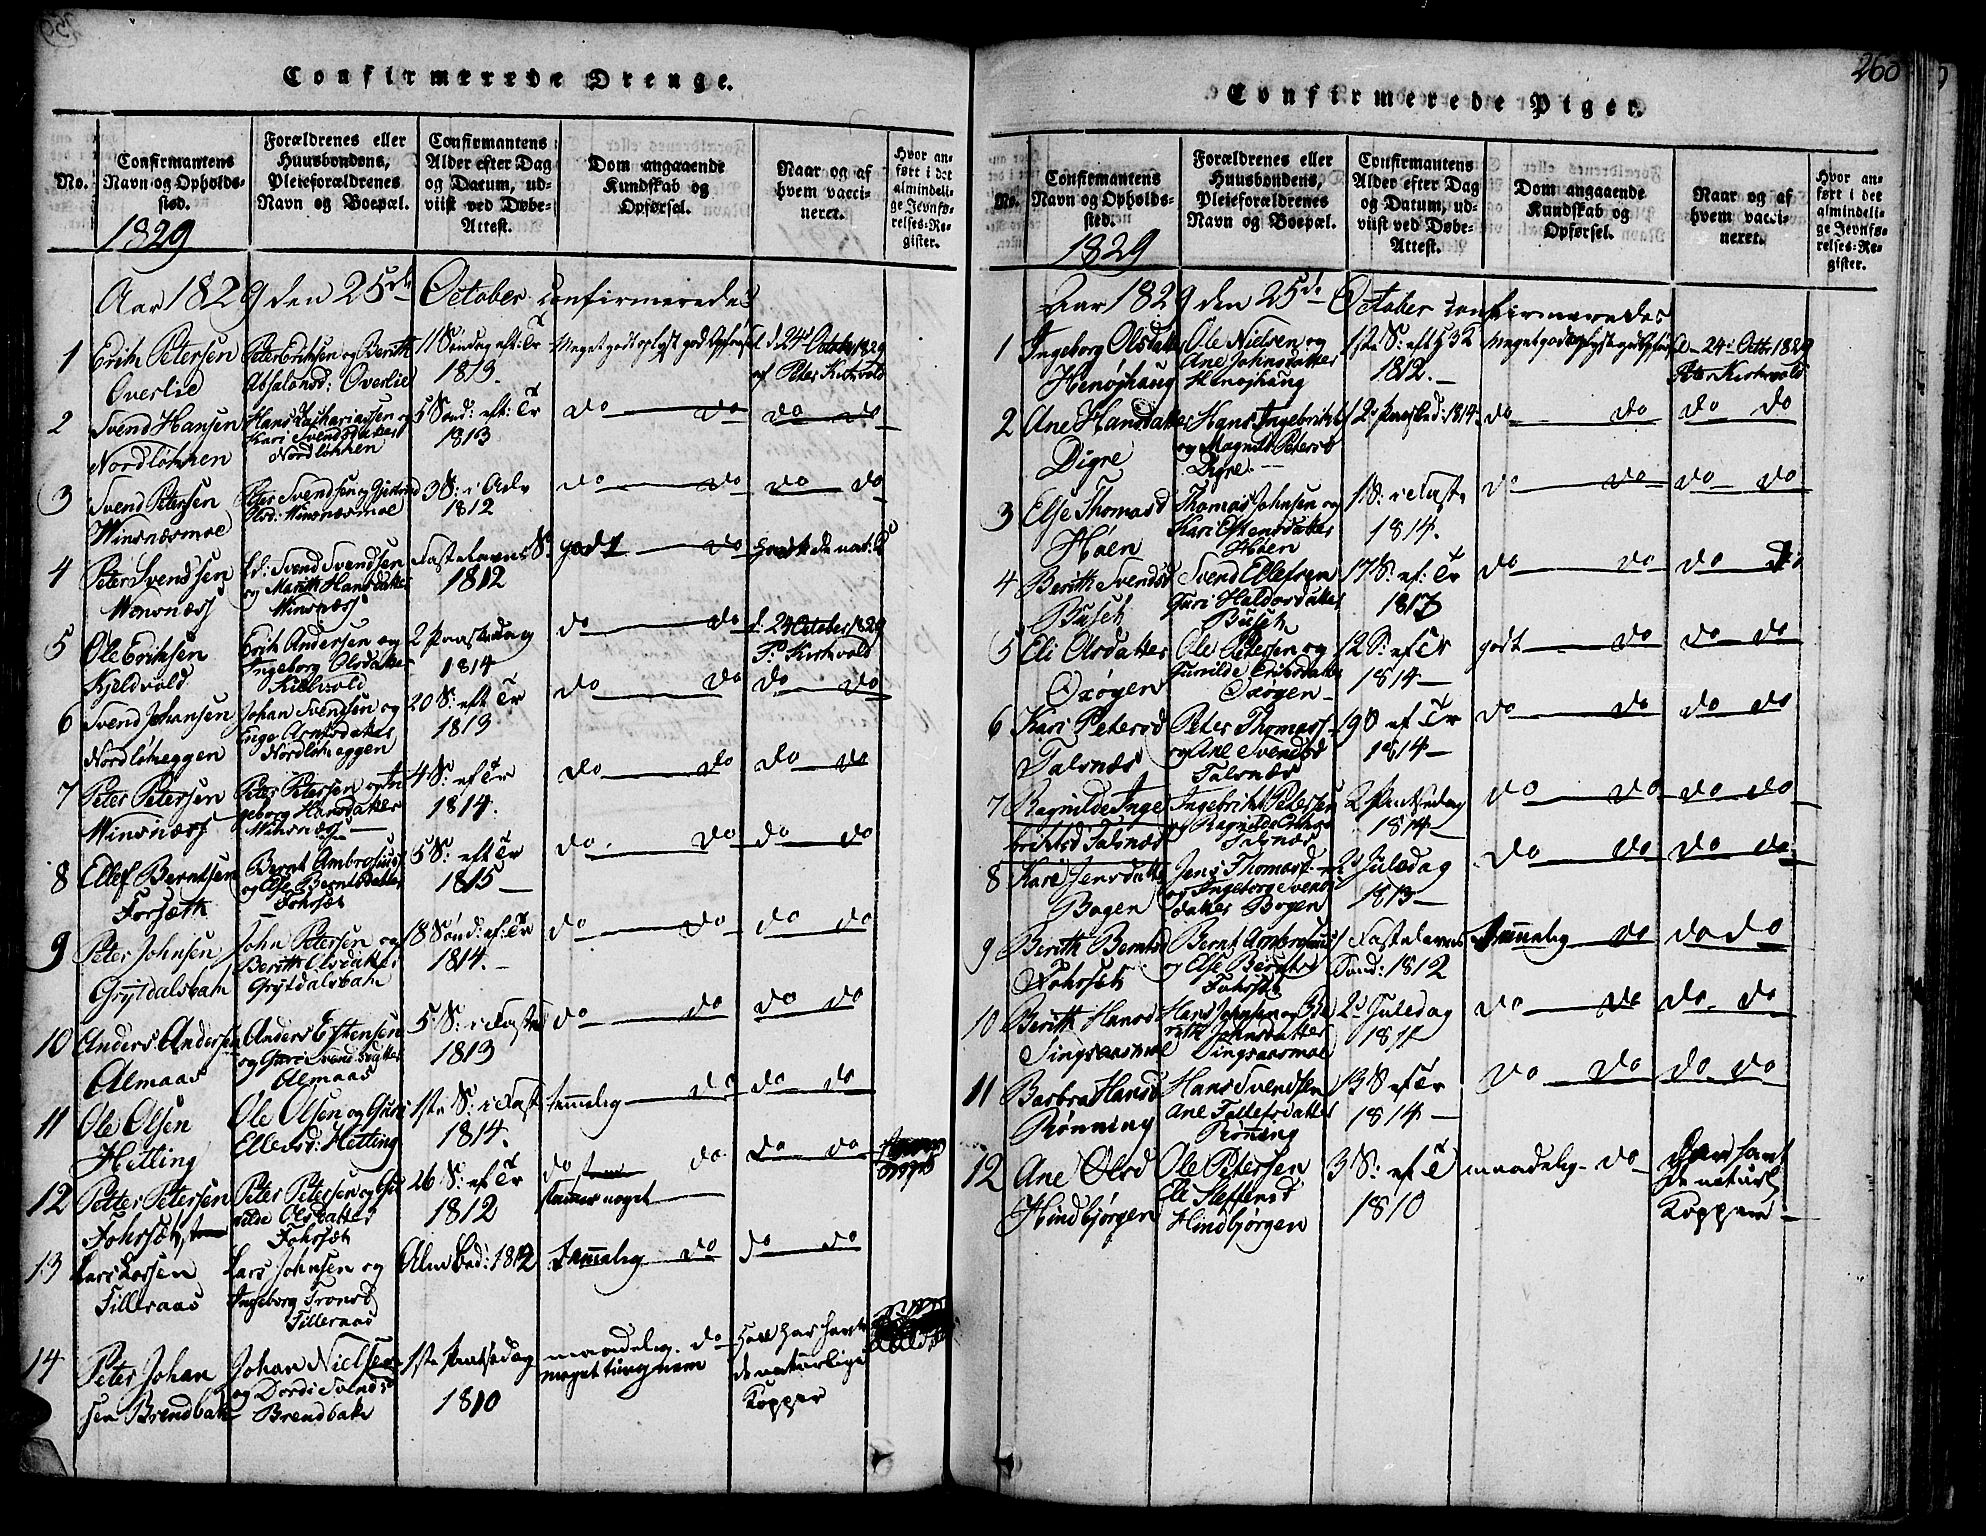 259
Confirmerede Drenge.
No.
Confirmantens
Navn og Opholds-
sted.
1829
Forældrenes eller
Huusbondens,
Pleieforældrenes
Navn og Boepæl.
Confirmantens
Alder efter Dag
og Datum, ud-
viist ved Døbe-
Attest.
Dom angaaende
Kundskab og
Opførsel.
Naar og af
hvem vacci-
neret.
Hvor an-
ført i det
almindeli-
ge Jevnfø-
relses-Re-
gister.
Aar 1829 den 25de October confirmeredes
1 Erich Petersen
Overlie
Peter Erichsen og Berith
Absalonsd: Overlie
11 Søndag eft: Tr
1813.
Meget godt oplyst god Opførsel
d 24d October 1829
af Peter Kirkvold
2 Svend Hansen
Nordløkken
Hans Zachariassen og
Kari Svendsdatter
Nordløkken
5 Sønd: eft: Tr
1813
do do
do do
3 Svend Petersen
Winsnæsmoe
Peter Svendsen og
Olsd: Winsnæsmoe
3 S: i Adv
1812
do do
do do
4 Peter Svendsen
Winsnæss
Svend Svendsen
og Marith Hansdatter
Winsnæss
Fastelavns S:
1812
godt do
5 Ole Erichsen
Kjeldvold
Erich Andersen og
Ingeborg Olsdatter
2 Paaskedag
1814
do do
d. 24 October 1829
P: Kirkvold
6 Svend Johansen
Nordløkeggen
Johan Svendsen og
Nordløkeggen
20 S: eft Tr
1813
do do
do do
7 Peter Petersen
Winsnæss
Peter Petersen og In
geborg Hansdatter
Winsnæss
4 S: ef Tr
1814.
do do
do do
8 Ellef Berntsen
Forsæth
Bernt Ambrosiuss
og Else Berntsdatter
Fohrsæt
5 S: eft Tr
1815
do do
do do
9 Peter Johnsen
Grytdalsbak
John Petersen og
Berith Olsdatter
Grytdalsbak
18 Sønd: ef: Tr
1814.
do do
do do
10 Anders Andersen
Almaas
Anders Estensen
og Guri Svendsdatter
Almaas
5 S: i Faste
1813
do do
do do
11 Ole Olsen
Hetting
Ole Olsen og Guri
Ellevsd: Hetting
1ste S: i Fast
1814.
temmelig do
do do
12 Petter Petersen
Fohrsæt,
Peter Petersen og Gu
Olsdatter
Fohrsæt
26 S: ef Tr
1812
do do
stammer noget
do do
13 Lars Larsen
Tilleraas
Lars Johnsen og
Ingeborg Tronsd
Tilleraas
1812
temmelig do
do do
14 Peter Johan
sen Brendbak
Johan Nielsen
og Dordi Svendsd
Brendbak
1ste Paaskedag
1810
maadelig do
meget tungnem
har havt
de naturlige
Kopper
260
Confirmerede Piger.
No.
Confirmantens
Navn og Opholds-
sted.
1829
Forældrenes eller
Huusbondens,
Pleieforældrenes
Navn og Boepæl.
Confirmantens
Alder efter Dag
og Datum, ud-
viist ved Døbe-
Attest.
Dom angaaende
Kundskab og
Opførsel.
Naar og af
hvem vacci-
neret.
Hvor an-
ført i det
almindeli-
ge Jevnfø-
relses-Re-
gister.
Aar 1829 den 25de October confirmeredes
1 Ingeborg Olsdatter
Ole Nielsen og
Ane Johnsdatter
1812.
d 24 Octbr 1829
Peter Kirkvold
2 Ane Hansdatter
Digre
Hans Ingebrikts
og Magnild Petersd
Digre.
2 Paasked: 1814
do do
do do
3 Else Thomasd
Høen
Thomas Johnsen og
Kari Estensdatter
Høen
1 S: i Fast
1814.
do do
do do
4 Berith Svendsd
Busch
Svend Ellefsen
Guri Haldosdatter
Busch
17 S: ef: Tr
1813
do do
do do
5 Eli Olsdatter
Oxøgen
Ole Petersen og
Gunilde Erichsdatter
Oxøgen
12 S: ef Tr
1814
godt do
do do
6 Kari Petersd
Talsnæs
Peter Thomass
og Ane Svendsd
Talsnæs
19 S ef Tr
1814
do do
do do
7 Ragnilde Inge
briktsd Talsnæs
Ingebrikt Petersen
og Ragnilde
Talsnæs
2 Paaskedag
1814
do do
do do
8 Kari Jensdatter
Bogen
Jens Thomass
og Ingeborg Svends
datter Bogen
2d Juledag
1813
do do
do do
9 Berith Berntsd
Fohrsæt
Bernt Ambrosiuss
og Else Berntsd
Fohrsæt
Fastelavns
Sønd: 1812
temmelig do
do do
10 Berith Hansd
Singsaasmoe
Hans Johnsen og Be
rith Johnsdatter
Singsaasmoe
2d Juledag
1811
do do
do do
11 Barbra Hansd
Rønning
Hans Svendsen
Ane Tollefsdatter
Rønning
13 S ef Tr
1814
do do
do do
12 Ane Olsd
Hindbjørgen
Ole Petersen
Eli Steffensd
Hindbjørgen
3 S: ef T
1810
maadelig do
har havt
de naturl
Kopper